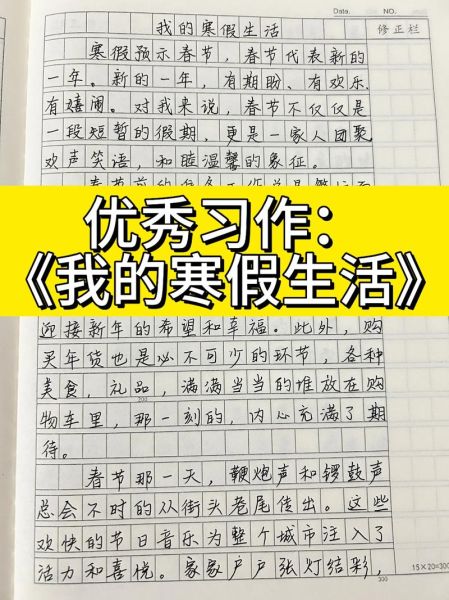 Date. NO.
我的寒假生活
修正栏
寒假预示春节，春节代表新的
一年。新的一年，有期盼、有欢乐、
有嬉闹。对我来说，春节不仅仅是
一段短暂的假期，更是一家人团聚
欢声笑语，和睦温馨的象征。
优秀习作：
《我的寒假生活》
迎接新年的希望和幸福。此外，购
买年货也是必不可少的环节，各种
美食，礼品，满满当当的堆放在购
200
物车里，那一刻的，内心充满了期
待。
春节那一天，鞭炮声和锣鼓声
总会不时的从街头巷尾传出。这些
欢快的节日音乐为整个城市注入了
活力和喜悦。家家户户张灯结彩，
15×20=300
300